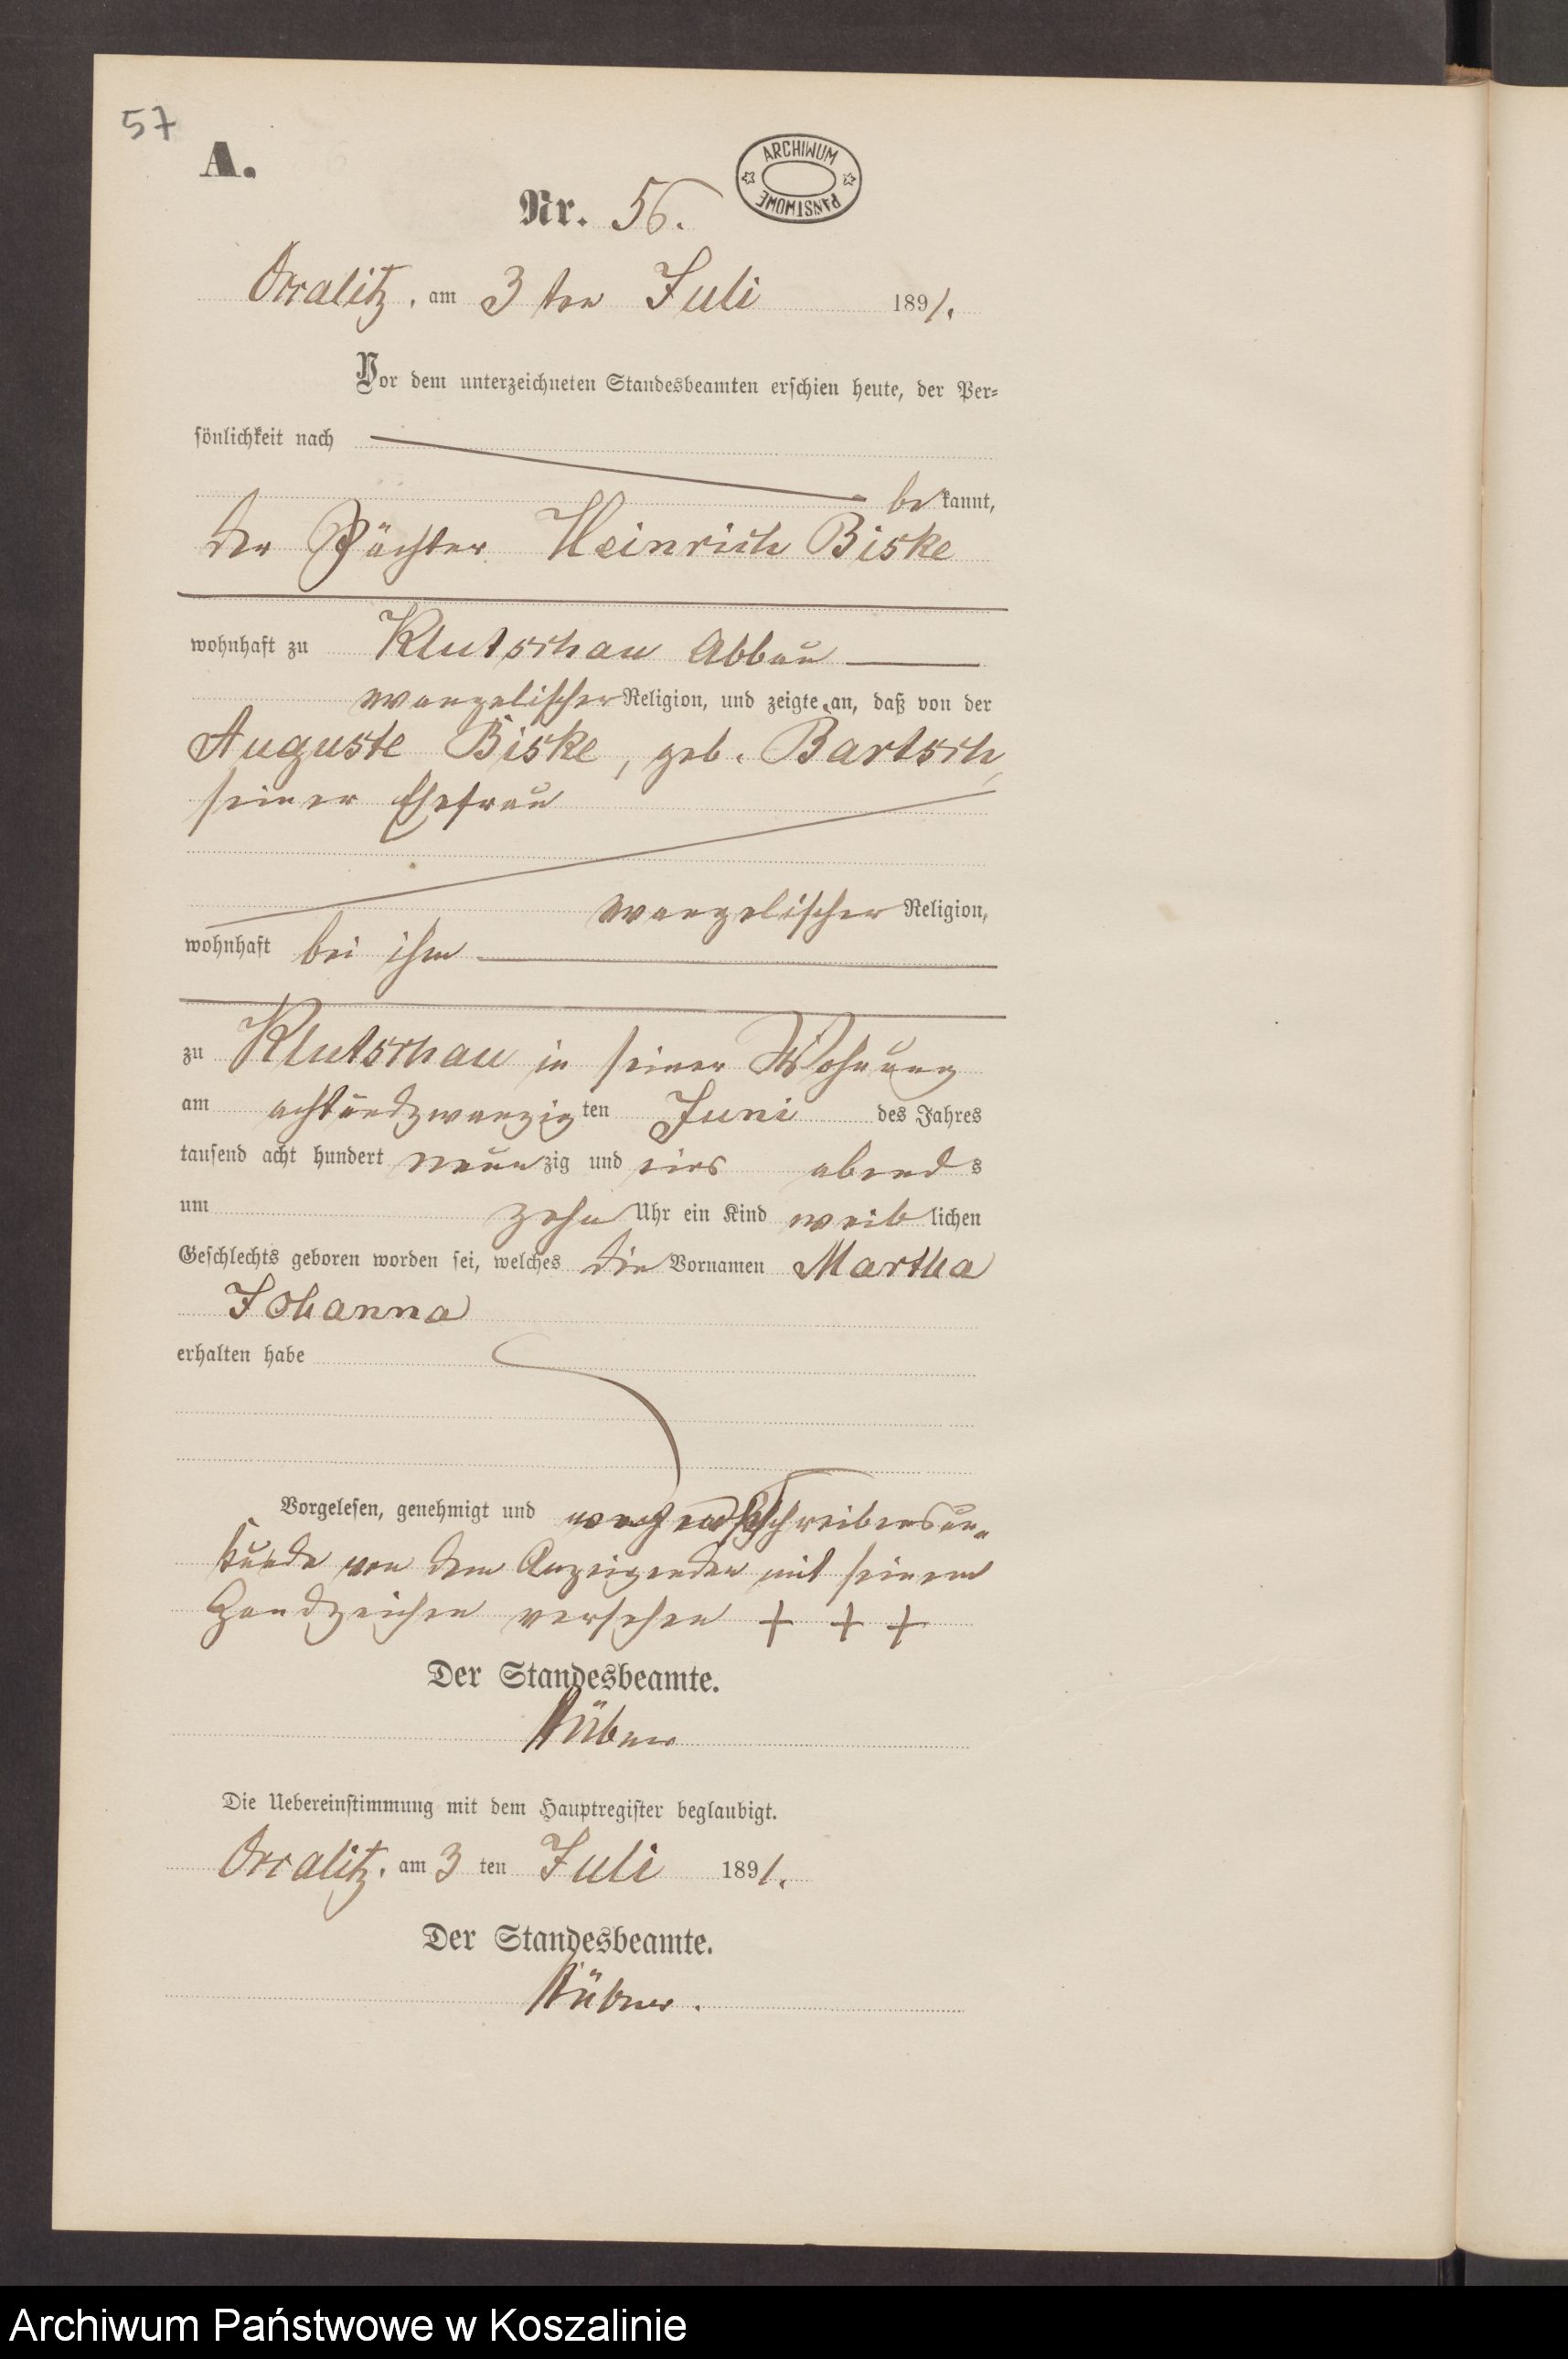 57
A.
ARCHIWUM
PAŃSTWOWE
Nr. 56.
Occalitz, am 3 ten Juli 1891.
Vor dem unterzeichneten Standesbeamten erschien heute, der Per=
sönlichkeit nach
bekannt,
der Pächter Heinrich Biske
wohnhaft zu Klutschau Abbau
evangelischer Religion, und zeigte an, daß von der
Auguste Biske, geb. Bartsch,
seiner Ehefrau
evangelischer Religion,
wohnhaft bei ihm
zu Klutschau in seiner Wohnung
am achtundzwanzigten Juni des Jahres
tausend acht hundert neunzig und eins abends
um zehn Uhr ein Kind weiblichen
Geschlechts geboren worden sei, welches die Vornamen Martha
Johanna
erhalten habe
Vorgelesen, genehmigt und wegen Schreibensun=
kunde von dem Anzeigenden mit seinem
Handzeichen versehen + + +
Der Standesbeamte.
Die Uebereinstimmung mit dem Hauptregister beglaubigt.
Occalitz, am 3 ten Juli 1891.
Der Standesbeamte.
Archiwum Państwowe w Koszalinie